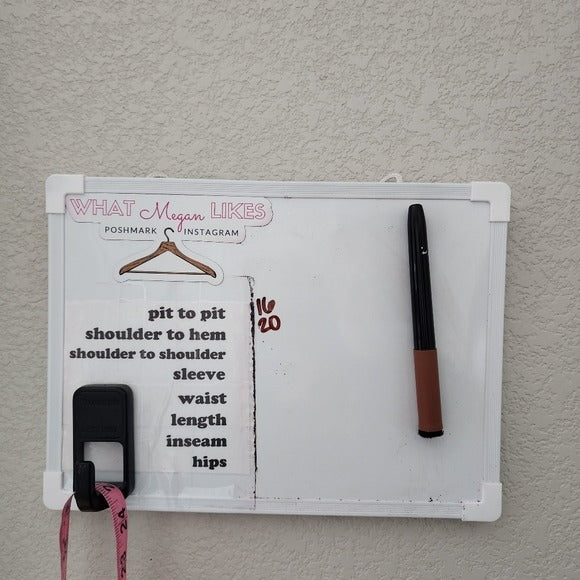 WHAT Megan LIKES
POSHMARK INSTAGRAM
pit to pit 16
shoulder to hem 20
shoulder to shoulder
sleeve
waist
length
inseam
hips